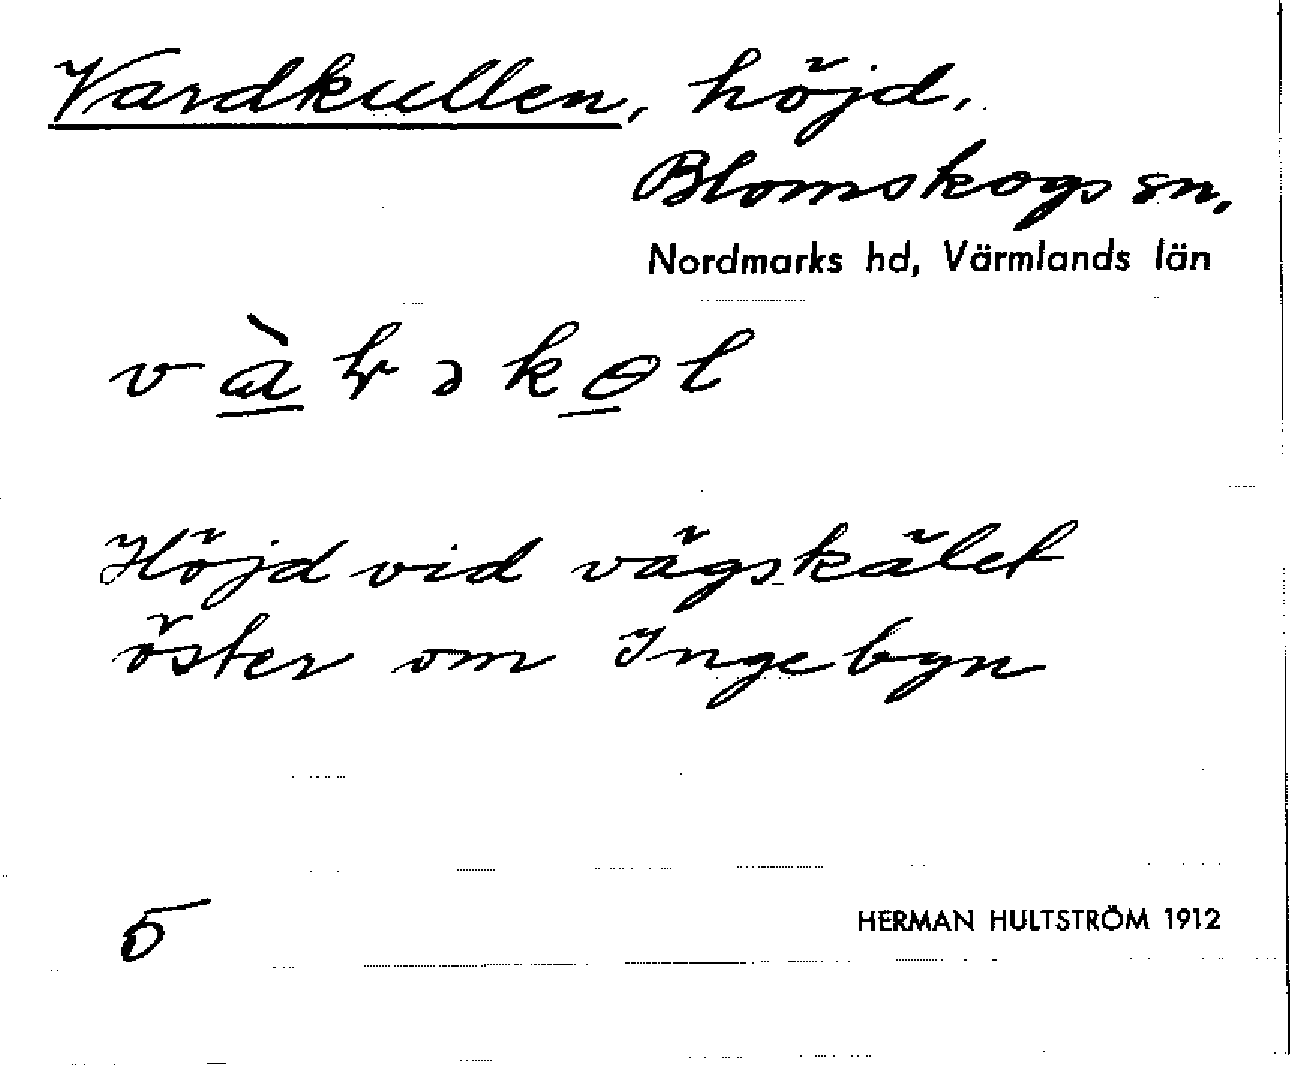 Vardkullen, höjd.
Blomskogs sn,
Nordmarks hd, Värmlands län
Höjd vid vägskälet
öster om Ingebyn
5
HERMAN HULTSTRÖM 1912